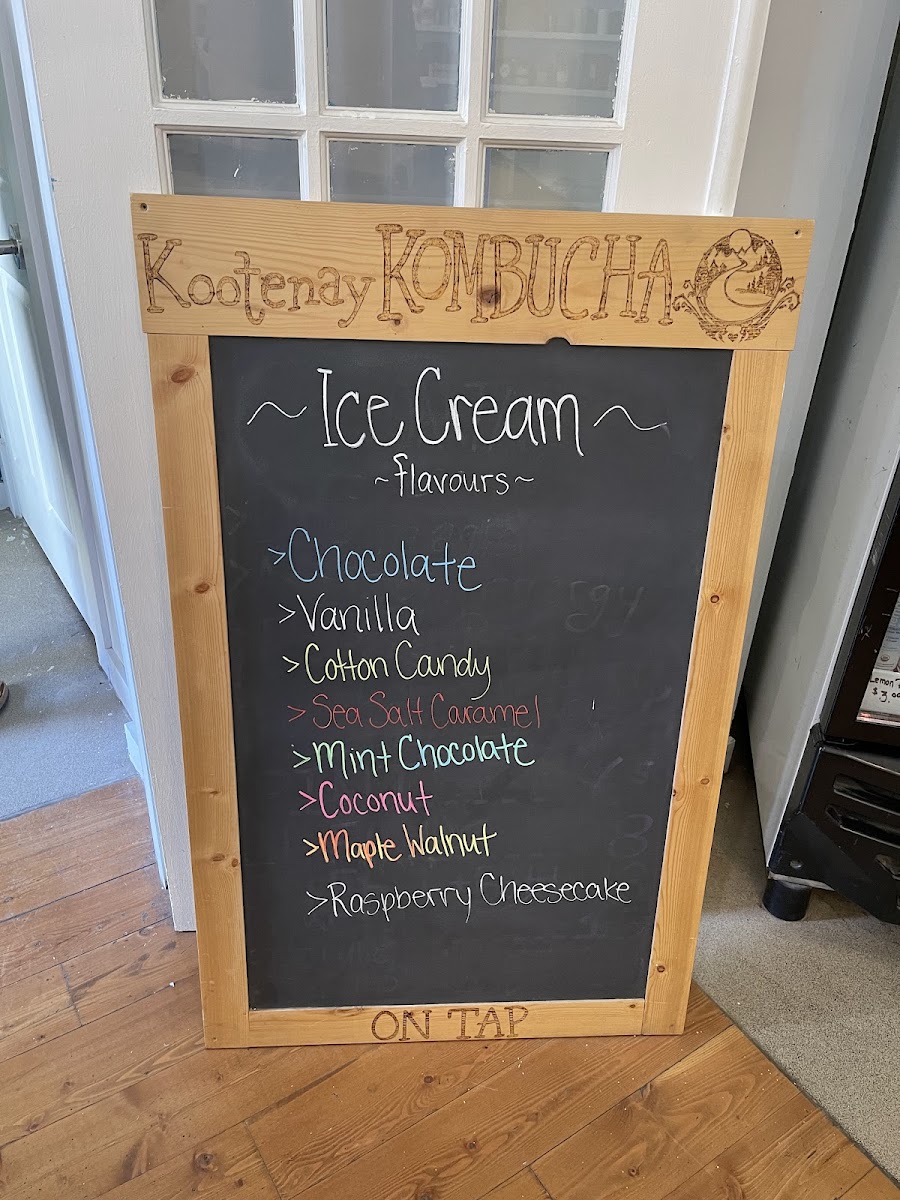 Kootenay KOMBUCHA
~ Ice Cream ~
~ flavours ~
> Chocolate
> Vanilla
> Cotton Candy
> Sea Salt Caramel
> Mint Chocolate
> Coconut
> Maple Walnut
> Raspberry Cheesecake
ON TAP
Lemon
$3.